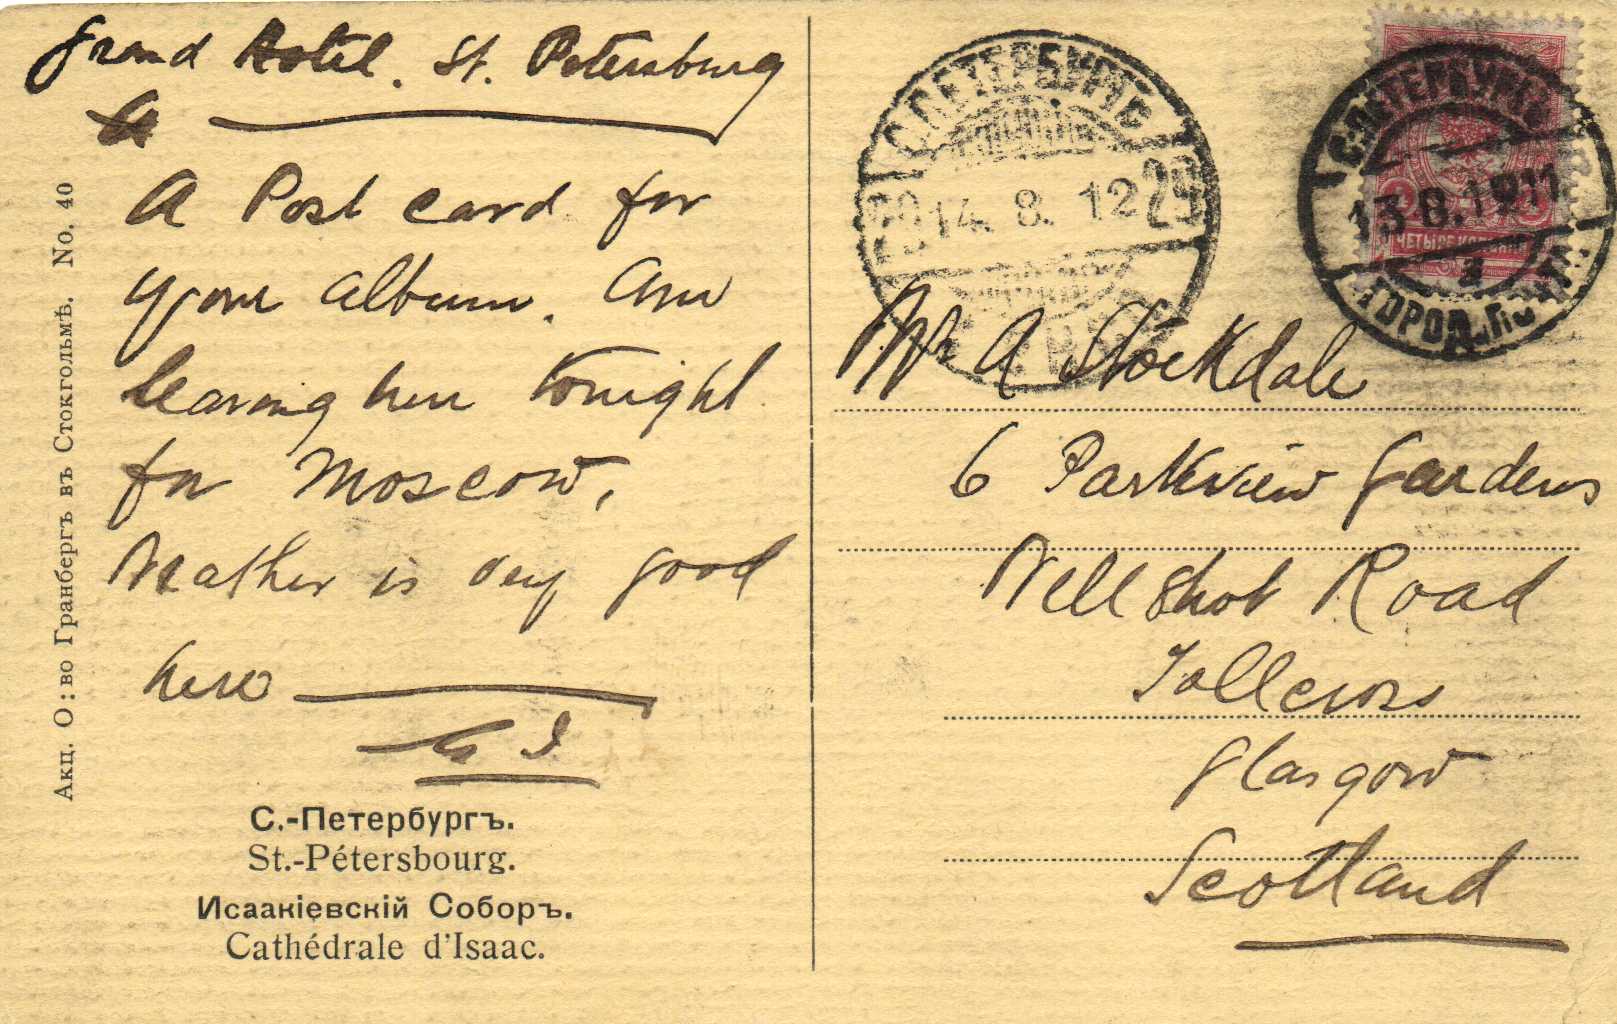 Grand Hotel. St. Petersburg
A Post card for
your album. Am
leaving here tonight
for Moscow,
Weather is very good
here
С.-Петербургъ.
St.-Pétersbourg.
Исаакіевскій Соборъ.
Cathédrale d'Isaac.
Акц. О:во Гранбергъ въ Стокгольмѣ. No. 40
С.ПЕТЕРБУРГЪ
14. 8. 12
С.ПЕТЕРБУРГЪ
13.8.1911
ЧЕТЫРЕ КОП
Mr A Stockdale
6 Parkview Gardens
Wellshot Road
Tollcross
Glasgow
Scotland